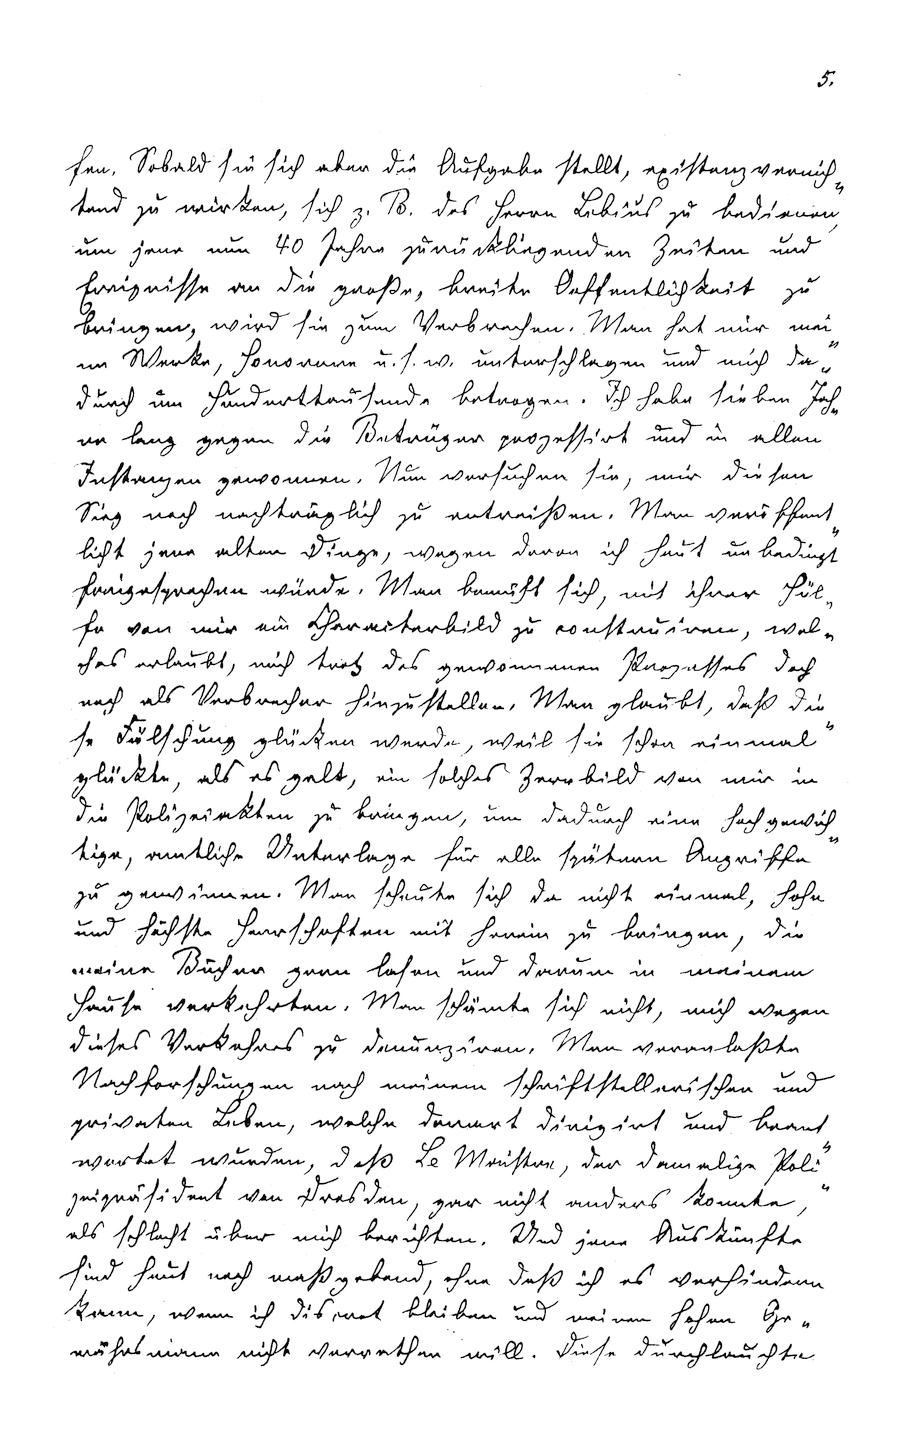 5.
fen. Sobald sie sich aber die Aufgabe stellt, existenzvernich„
tend zu wirken, sich z. B. des Herrn Lebius zu bedienen,
um jene nun 40 Jahre zurückliegenden Zeiten und
Ereignisse an die große, breite Oeffentlichkeit zu
bringen, wird sie zum Verbrechen. Man hat mir mei„
ne Werke, Honorare u. s. w. unterschlagen und mich da„
durch um Hunderttausende betrogen. Ich habe sieben Jah„
re lang gegen die Betrüger prozessirt und in allen
Instanzen gewonnen. Nun versuchen sie, mir diesen
Sieg noch nachträglich zu entreißen. Man veröffent„
licht jene alten Dinge, wegen deren ich heut unbedingt
freigesprochen würde. Man bemüht sich, mit ihrer Hül„
fe von mir ein Charakterbild zu construiren, wel„
ches erlaubt, mich trotz des gewonnenen Prozesses doch
noch als Verbrecher hinzustellen. Man glaubt, daß die„
se Fälschung glücken werde, weil sie schon einmal
glückte, als es galt, ein solches Zerrbild von mir in
die Polizeiakten zu bringen, um dadurch eine hochgewich„
tige, amtliche Unterlage für alle spätern Angriffe
zu gewinnen. Man scheute sich da nicht einmal, hohe
und höchste Herrschaften mit herein zu bringen, die
meine Bücher gern lasen und darum in meinem
Hause verkehrten. Man schämte sich nicht, mich wegen
dieses Verkehres zu denunziren. Man veranlaßte
Nachforschungen nach meinem schriftstellerischen und
privaten Leben, welche derart dirigirt und beant„
wortet wurden, daß Le Maistre, der damalige Poli„
zeipräsident von Dresden, gar nicht anders konnte,
als schlecht über mich berichten. Und jene Auskünfte
sind heut noch maßgebend, ohne daß ich es verhindern
kann, wenn ich discret bleiben und meinen hohen Ge„
währsmann nicht verrathen will. Diese durchlauchte